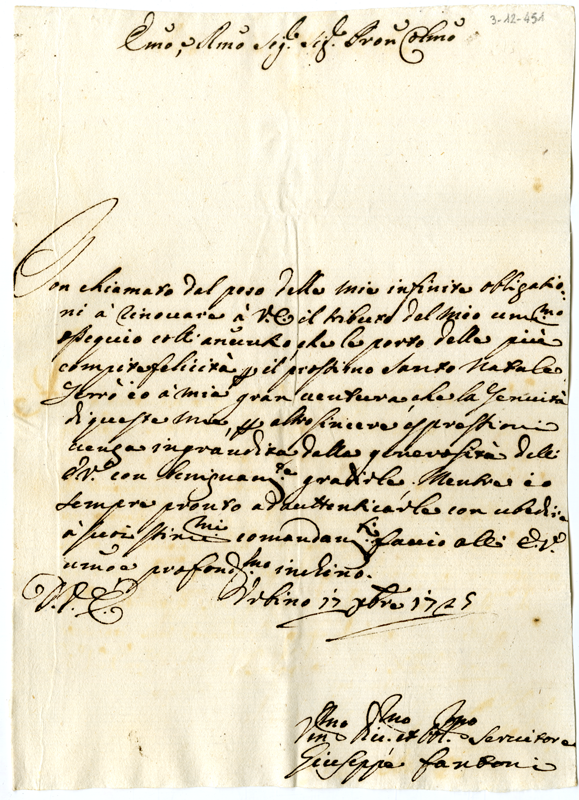 3-12-451
Emo, e Rmo Sig.r Sig.r Pron Colmo
Son chiamato dal peso delle mie infinite obligatio
ni à rinouare à V.E. il tributo del mio um.mo
ossequio coll'annuntio che le porto delle più
compite felicità p il prossimo Santo Natale
Terrò io à mia gran uentura che la tenuità
di queste mie p altro sincere espressioni
uenga ingrandita dalla generosità dell
E.V. con benignam.te gradirle. Mentre io
sempre pronto ad auttenticarle con ubedire
à suoi stim.mi comandam.ti faccio all E.V.
umo e profond.mo inchino.
D.V.E. Urbino 17 Xbre 1725
Um.mo Di.mo et Obl.mo Seruitore
Giuseppe Fantoni